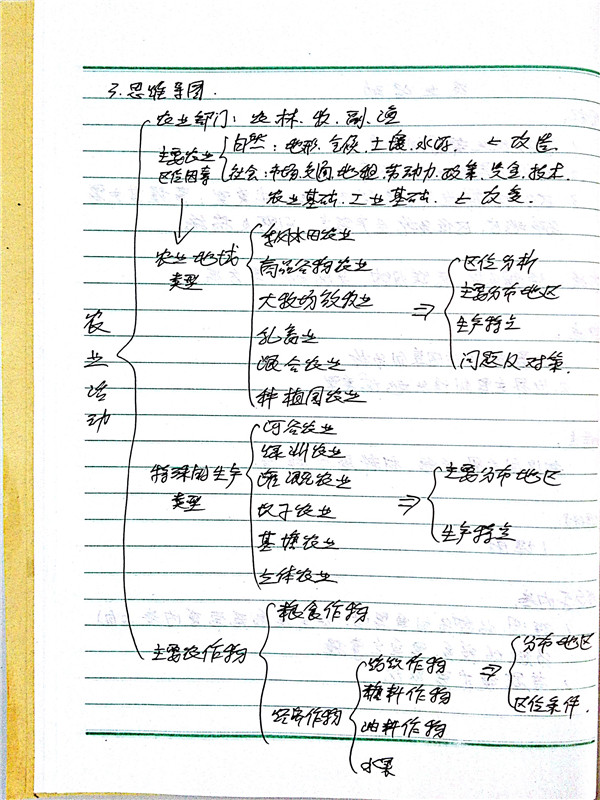 3.思维导图.
农业部门:农.林.牧.副.渔
主要农业
区位因素
自然:地形.气候.土壤.水源. ← 改造
社会:市场.交通.地租.劳动力.政策.资金.技术.
农业基础.工业基础. ← 改变.
农业地域
类型
水田农业
商品谷物农业
大牧场放牧业
乳畜业
混合农业
种植园农业
⇒
区位分析
主要分布地区
生产特点
问题及对策.
农业活动
特殊的生产
类型
河谷农业
绿洲农业
灌溉农业
坝子农业
基塘农业
立体农业
⇒
主要分布地区
生产特点
主要农作物
粮食作物
经济作物
纺织作物
糖料作物
油料作物
水果
⇒
分布地区
区位条件.